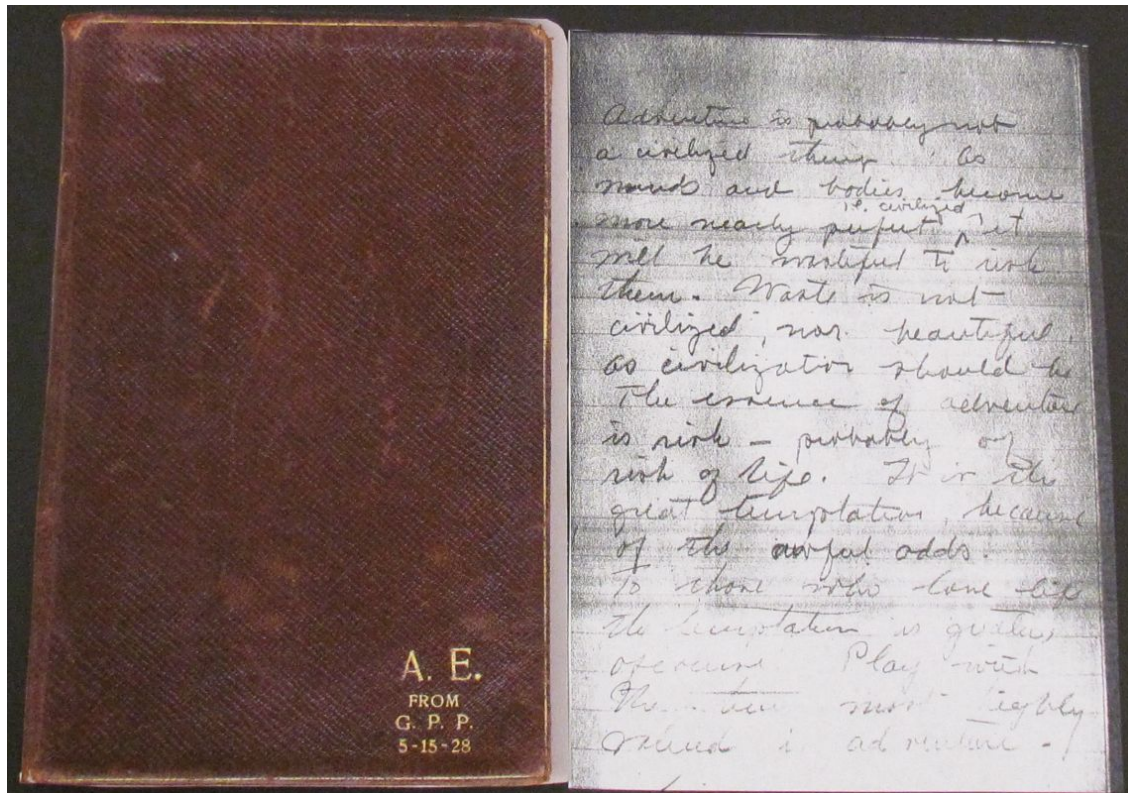 A. E.
FROM
G. P. P.
5-15-28
Adventure is probably not
a civilized thing. As
minds and bodies become
i.e. civilized,
more nearly perfect, it
will be wasteful to risk
them. Waste is not
civilized, nor beautiful,
as civilization should be
The essence of adventure
is risk – probably of
risk of life. It is the
great temptation, because
of the awful odds.
To those who love life
the temptation is greatest
Play with
the most highly
valued is adventure.